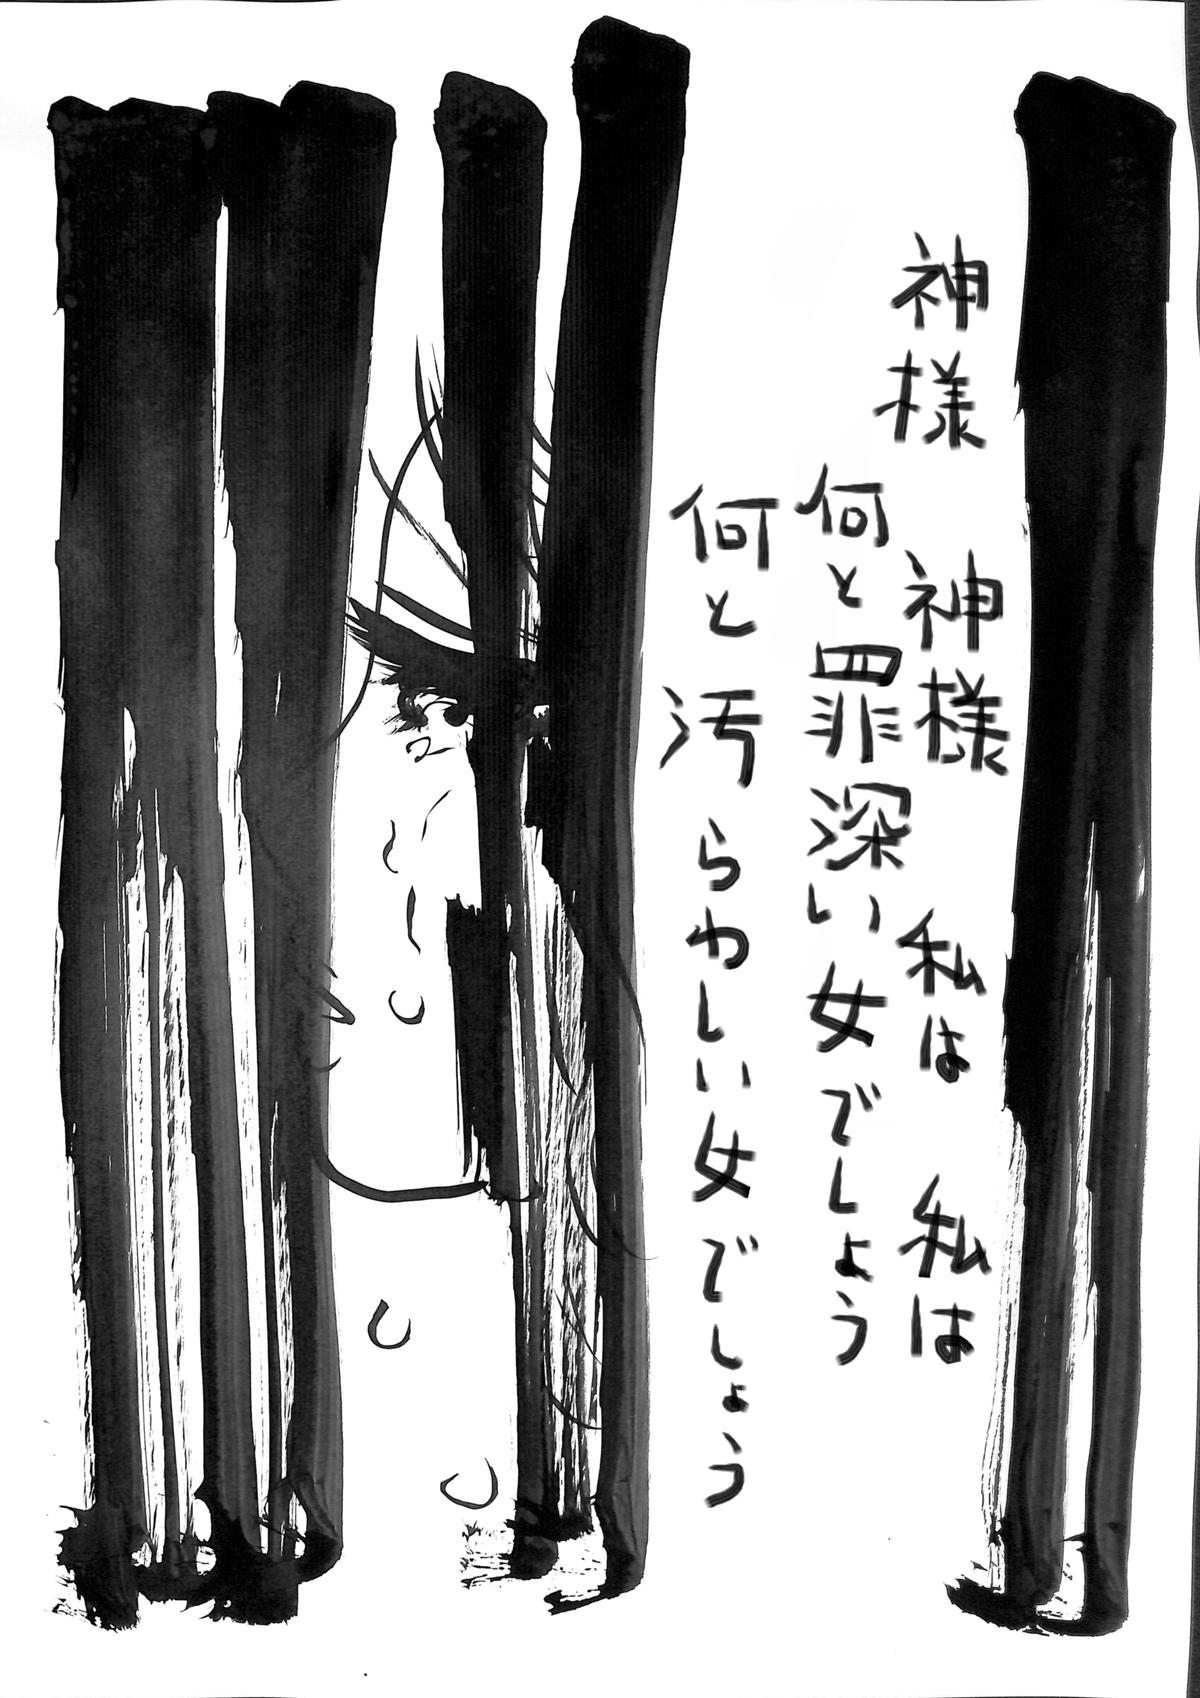 神様 神様 私は 私は
何と罪深い女でしょう
何と汚らわしい女でしょう